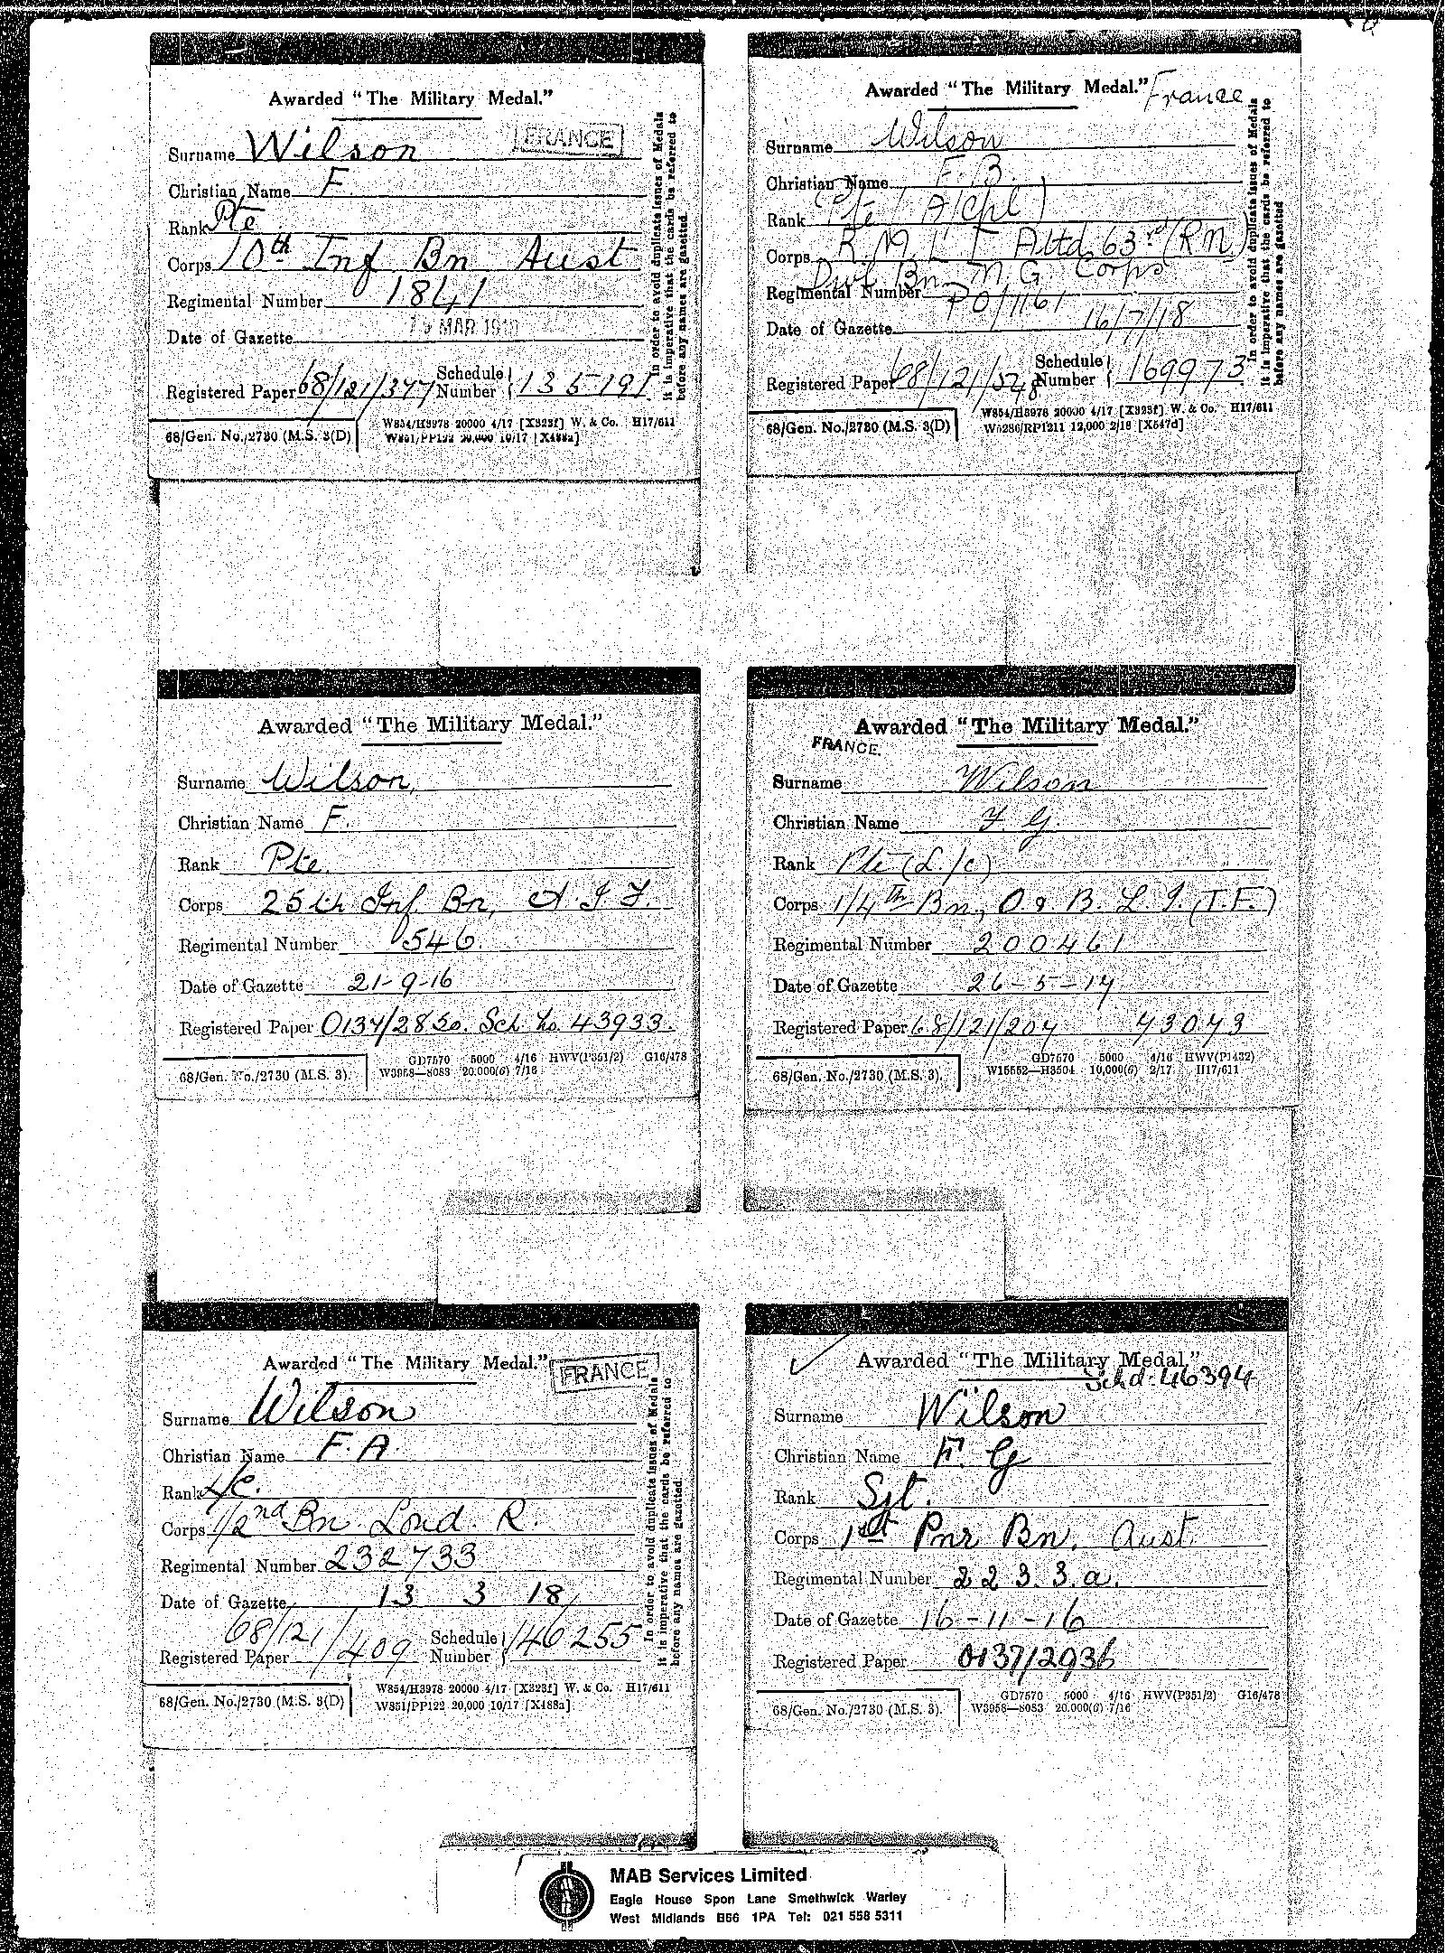 Awarded "The Military Medal."
FRANCE
Surname Wilson
Christian Name F.
Rank Pte
Corps 10th Inf Bn Aust
Regimental Number 1841
Date of Gazette MAR
Registered Paper 68/121/347 Schedule Number 135191
68/Gen. No./2730 (M.S. 3(D)
W854/H3978 20000 4/17 [X323f] W. & Co. H17/611
W851/PP122 20,000 10/17 [X488a]
In order to avoid duplicate issues of Medals
it is imperative that the cards be referred to
before any names are gazetted.
Awarded "The Military Medal."
France
Surname Wilson
Christian Name F. B.
Rank (Pte (A/Cpl)
Corps R.M.L.I. Attd. 63rd (RN)
Divl Bn. M.G. Corps
Regimental Number PO/1161
Date of Gazette 16/7/18
Registered Paper 68/121/528 Schedule Number 169973
68/Gen. No./2730 (M.S. 3(D)
W854/H3978 20000 4/17 [X323f] W. & Co. H17/611
12,000 2/18 [X547d]
In order to avoid duplicate issues of Medals
it is imperative that the cards be referred to
before any names are gazetted.
Awarded "The Military Medal."
Surname Wilson,
Christian Name F.
Rank Pte.
Corps 25th Inf. Bn, A. I. F.
Regimental Number 546.
Date of Gazette 21-9-16
Registered Paper 0137/2850. Sch. No. 43933.
68/Gen. No./2730 (M.S. 3).
GD7570 5000 4/16 HWV(P351/2) G16/478
W3958—8083 20.000(6) 7/16
Awarded "The Military Medal."
FRANCE.
Surname Wilson
Christian Name F. G.
Rank Pte (L/c)
Corps 1/4th Bn, O. & B. L. I. (T.F.)
Regimental Number 200461
Date of Gazette 26-5-17
Registered Paper 68/121/204 43043
68/Gen. No./2730 (M.S. 3).
GD7570 5000 4/16 HWV(P1432)
W15552—H3504 10,000(6) 2/17 H17/611
Awarded "The Military Medal."
FRANCE
Surname Wilson
Christian Name F. A.
Rank L/c.
Corps 1/2nd Bn. Lond. R.
Regimental Number 232733
Date of Gazette 13 3 18
Registered Paper 68/121/409 Schedule Number 146255
68/Gen. No./2730 (M.S. 3(D)
W854/H3978 20000 4/17 [X323f] W. & Co. H17/611
W851/PP122 20,000 10/17 [X488a]
In order to avoid duplicate issues of Medals
it is imperative that the cards be referred to
before any names are gazetted.
Awarded "The Military Medal."
Schd: 46394
Surname Wilson
Christian Name F. G
Rank Sgt.
Corps 1st Pnr Bn. Aust.
Regimental Number 2233.a.
Date of Gazette 16-11-16
Registered Paper 0137/2936
68/Gen. No./2730 (M.S. 3).
GD7570 5000 4/16 HWV(P351/2) G16/478
W3958—8083 20.000(6) 7/16
MAB Services Limited
Eagle House Spon Lane Smethwick Warley
West Midlands B66 1PA Tel: 021 558 5311